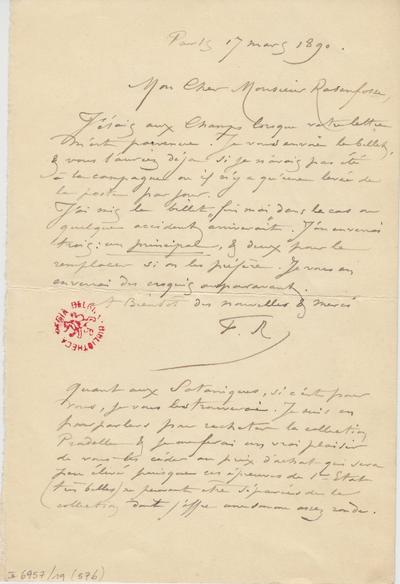 Paris 17 mars 1890.
Mon Cher Monsieur Rassenfosse,
J'étais aux Champs lorsque votre lettre
m'est parvenue. Je vous envoie le billet,
& vous l'auriez déjà si je n'avais pas été
à la campagne où il n'y a qu'une levée de
la poste par jour.
J'ai mis le billet fin mai dans le cas où
quelque accident arriverait. J'en enverrai
trois: un principal, & deux pour le
remplacer si on les préfère. Je vous en
enverrai des croquis auparavant.
A Bientôt des nouvelles & merci
F. R
BIBLIOTHECA REGIA BELGICA
quant aux Sataniques, si c'est pour
vous, je vous les trouverai. Je suis en
pourparlers pour racheter la collection
Pradelle & je me ferai un vrai plaisir
de vous les céder au prix d'achat qui sera
peu élevé puisque ces épreuves de 1er Etat
(très belles) ne peuvent être séparées de la
collection dont j'offre une somme assez ronde.
II 6957/19 (576)